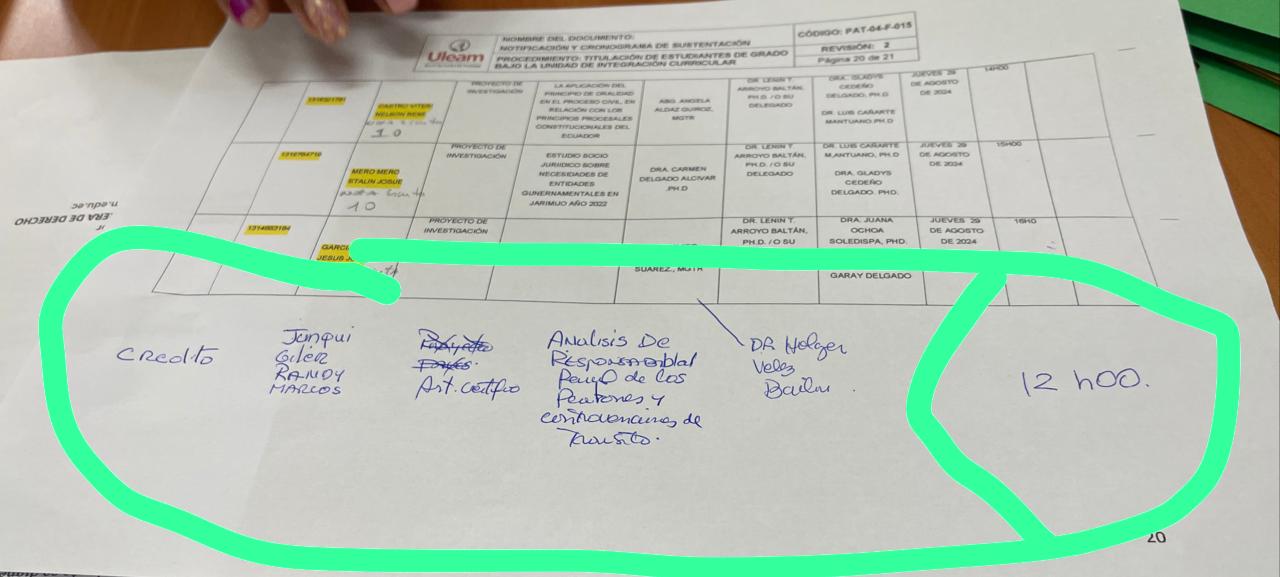 Uleam
NOMBRE DEL DOCUMENTO:
NOTIFICACIÓN Y CRONOGRAMA DE SUSTENTACIÓN
PROCEDIMIENTO: TITULACIÓN DE ESTUDIANTES DE GRADO
BAJO LA UNIDAD DE INTEGRACIÓN CURRICULAR
CÓDIGO: PAT-04-F-015
REVISIÓN: 2
Página 20 de 21
CASTRO VITERI
NELSON RENE
10
PROYECTO DE
INVESTIGACIÓN
LA APLICACIÓN DEL
PRINCIPIO DE ORALIDAD
EN EL PROCESO CIVIL, EN
RELACIÓN CON LOS
PRINCIPIOS PROCESALES
CONSTITUCIONALES DEL
ECUADOR
ABG. ANGELA
ALDAZ QUIROZ,
MGTR
DR. LENIN T.
ARROYO BALTÁN,
PH.D. / O SU
DELEGADO
DRA. GLADYS
CEDEÑO
DELGADO, PH.D
DR. LUIS CAÑARTE
MANTUANO, PH.D
JUEVES 29
DE AGOSTO
DE 2024
14H00
1316794716
MERO MERO
STALIN JOSUE
10
PROYECTO DE
INVESTIGACIÓN
ESTUDIO SOCIO
JURIDICO SOBRE
NECESIDADES DE
ENTIDADES
GUNERNAMENTALES EN
JARIMIJO AÑO 2022
DRA. CARMEN
DELGADO ALCIVAR
PH.D
DR. LENIN T.
ARROYO BALTÁN,
PH.D. / O SU
DELEGADO
DR. LUIS CAÑARTE
MANTUANO, PH.D
DRA. GLADYS
CEDEÑO
DELGADO, PHD.
JUEVES 29
DE AGOSTO
DE 2024
15H00
GARCI
JESUS J
PROYECTO DE
INVESTIGACIÓN
SUAREZ., MGTR
DR. LENIN T.
ARROYO BALTÁN,
PH.D. / O SU
DRA. JUANA
OCHOA
SOLEDISPA, PHD.
GARAY DELGADO
JUEVES 29
DE AGOSTO
DE 2024
16H0
n.edu.ec
ERA DE DERECHO
Credito
Junqui
Giler
RANDY
MARCOS
Art. Cientfico
Analisis De
Responsabilal
Penal de Los
Peatones y
contravenciones de
Transito.
DR Holger
Velez
Bailu
12 h00.
20